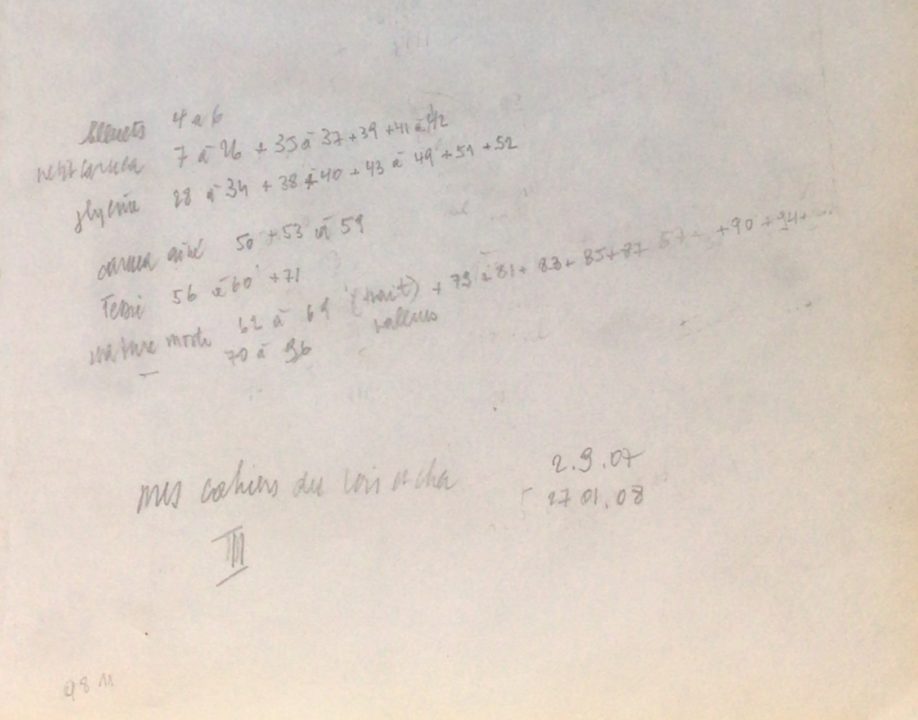 bleuets 4 a 6
petit caruca 7 à 26 + 35 à 37 + 39 + 41 à 42
glycine 28 à 34 + 38 à 40 + 43 à 49 + 51 + 52
caruca 50 + 53 à 59
56 à 60 + 71
nature morte 62 à 69 (trait) + 79 à 81 + 83 + 85 + 87 + 90 + 94 + ...
70 à 96
mes cahiers du
III
2.9.07
27 01.08
98 11